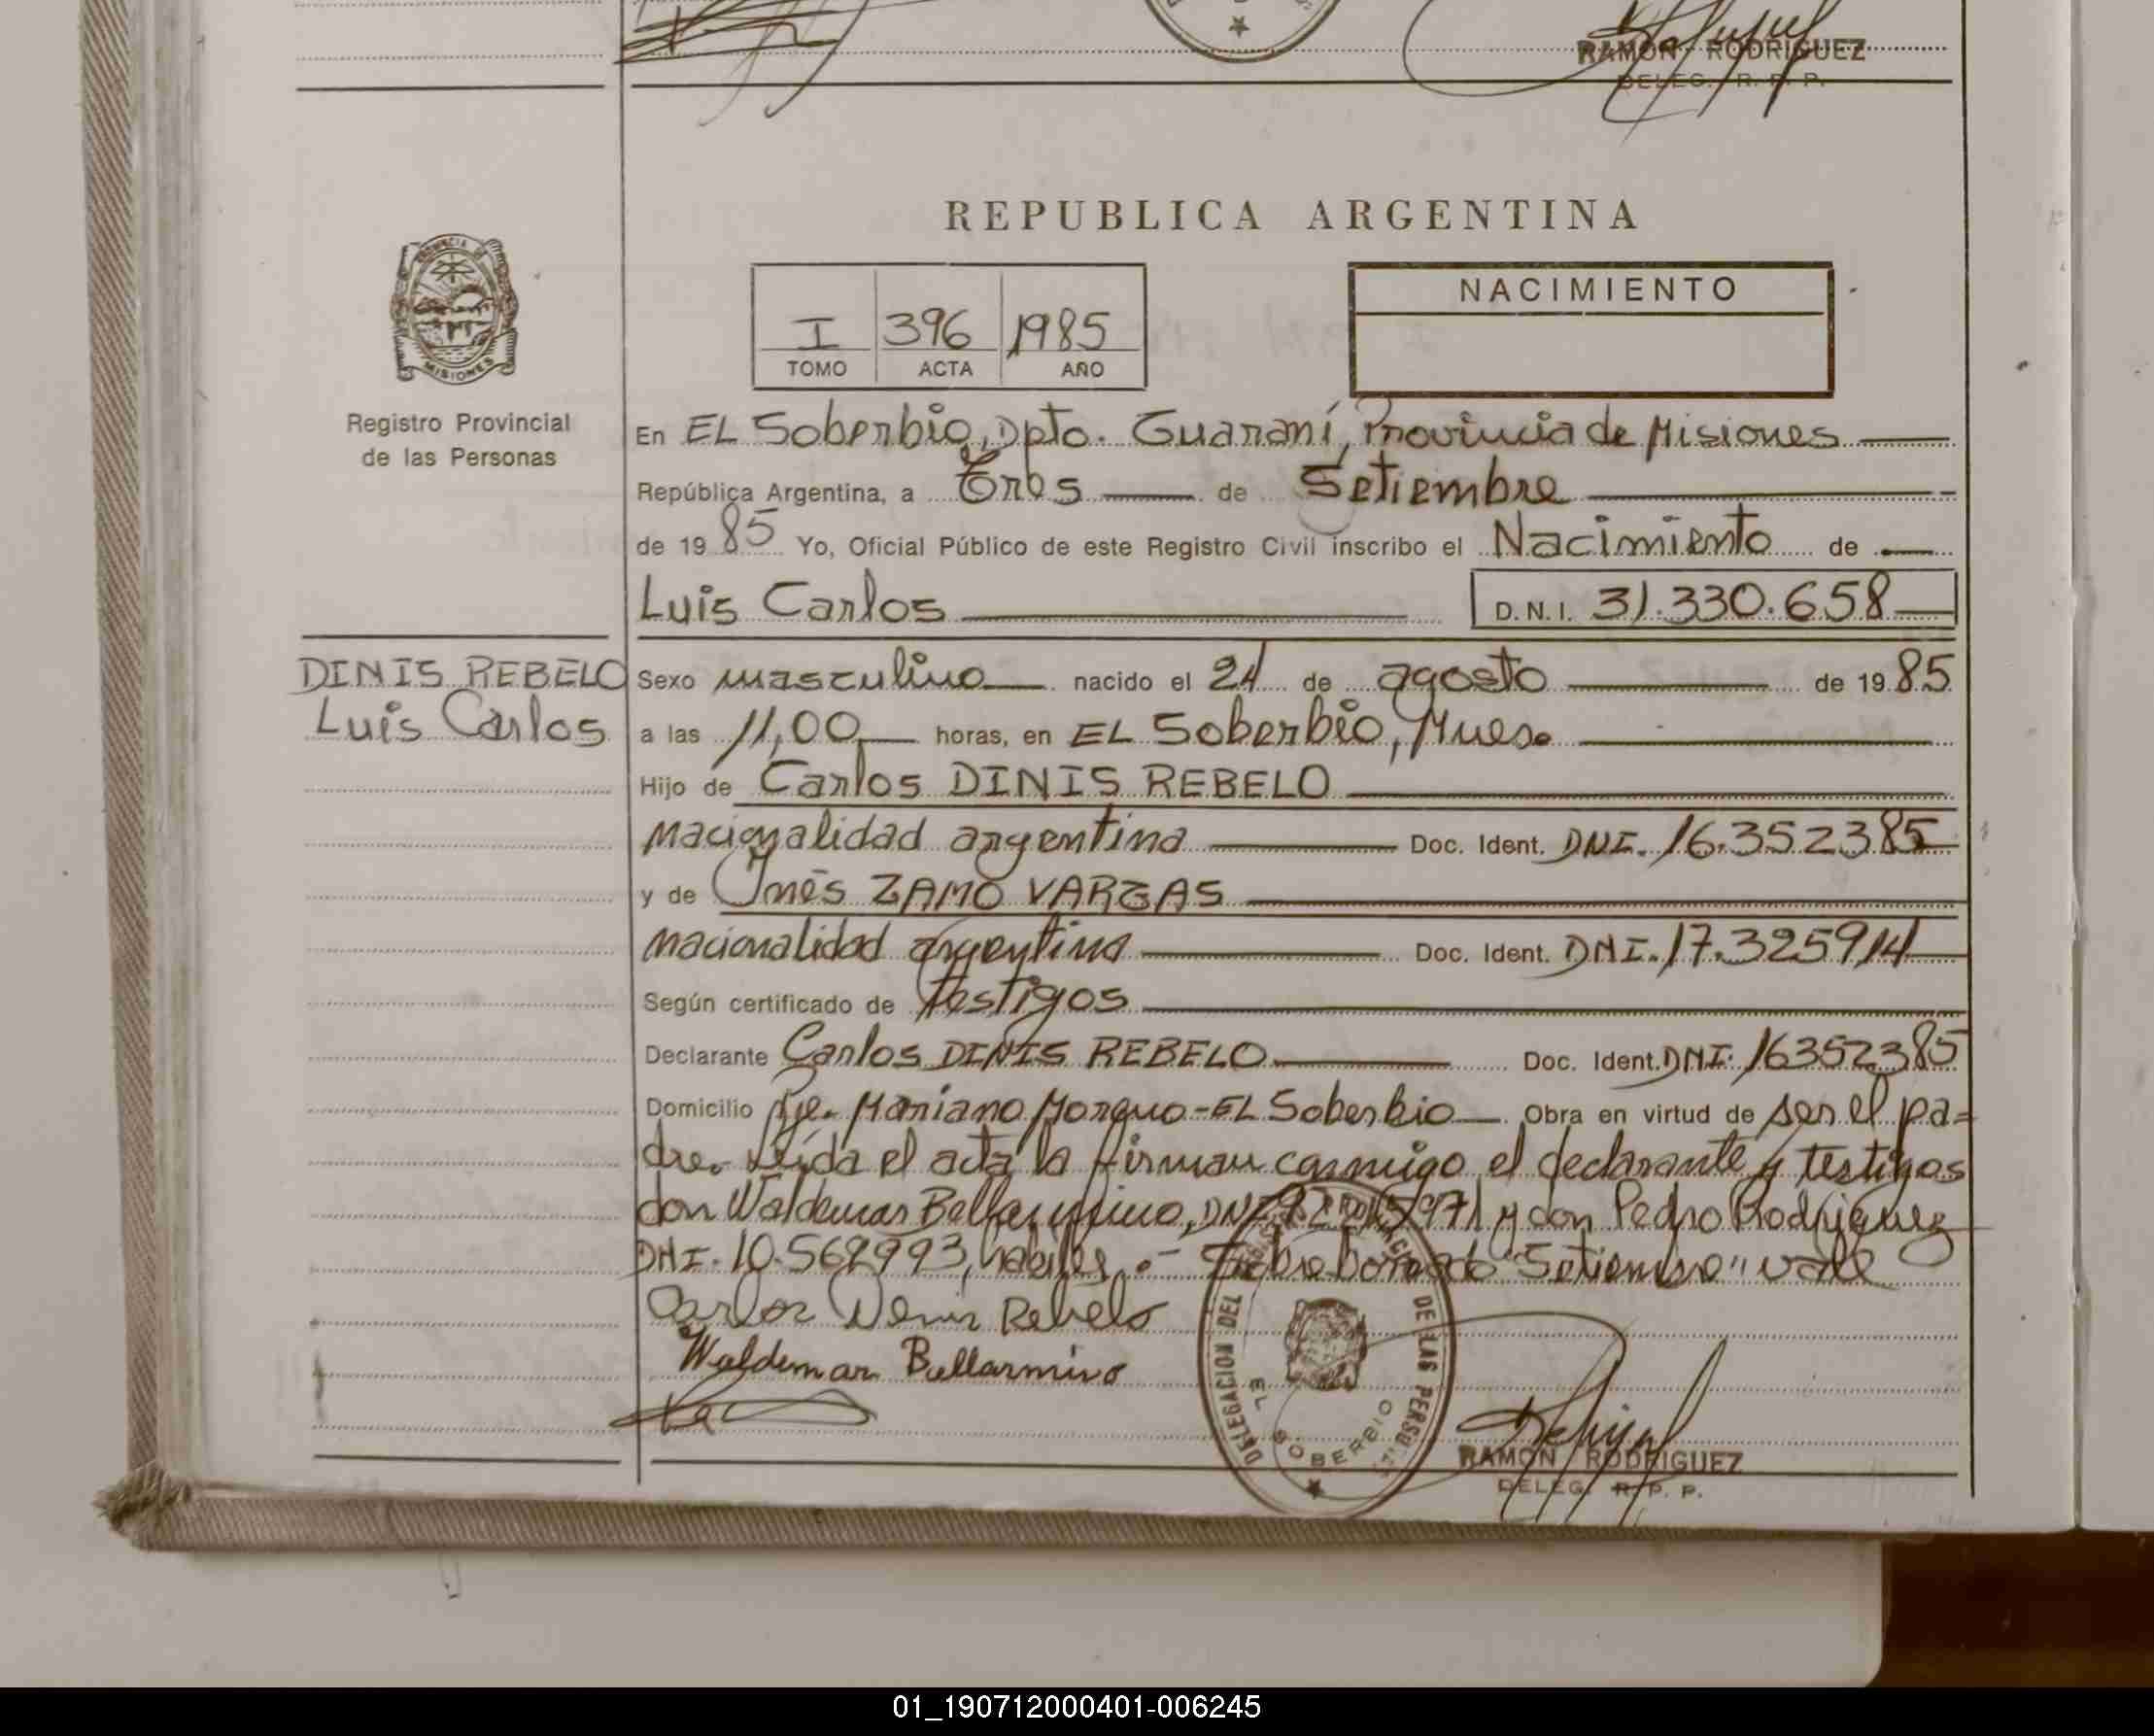 RAMON RODRIGUEZ
DELEG. R. P. P.
REPUBLICA ARGENTINA
PROVINCIA DE
MISIONES
Registro Provincial
de las Personas
I 396 1985
TOMO ACTA AÑO
NACIMIENTO
En EL Soberbio, Dpto. Guaraní, Provincia de Misiones
República Argentina, a Tres de Setiembre
de 1985 Yo, Oficial Público de este Registro Civil inscribo el Nacimiento de
Luis Carlos D.N.I. 31.330.658
DINIS REBELO
Luis Carlos
Sexo masculino nacido el 24 de agosto de 1985
a las 11,00 horas, en EL Soberbio, Mnes.
Hijo de Carlos DINIS REBELO
nacionalidad argentina Doc. Ident. DNI. 16.352385
y de Inés ZAMO VARGAS
nacionalidad argentina Doc. Ident. DNI. 17.325914
Según certificado de testigos
Declarante Carlos DINIS REBELO Doc. Ident. DNI: 16352385
Domicilio Pje. Mariano Moreno-EL Soberbio Obra en virtud de ser el pa=
dre. Leída el acta la firman conmigo el declarante y testigos
don Waldemar Bellarmino, DNI y don Pedro Rodriguez
DNI. 10.569993, habiles.- Sobre borrado "Setiembre" vale
Carlos Denis Rebelo
Waldemar Bullarmino
DELEGACION DEL DE LAS PERSO
EL SOBERBIO
RAMON RODRIGUEZ
DELEG. R. P. P.
01_190712000401-006245